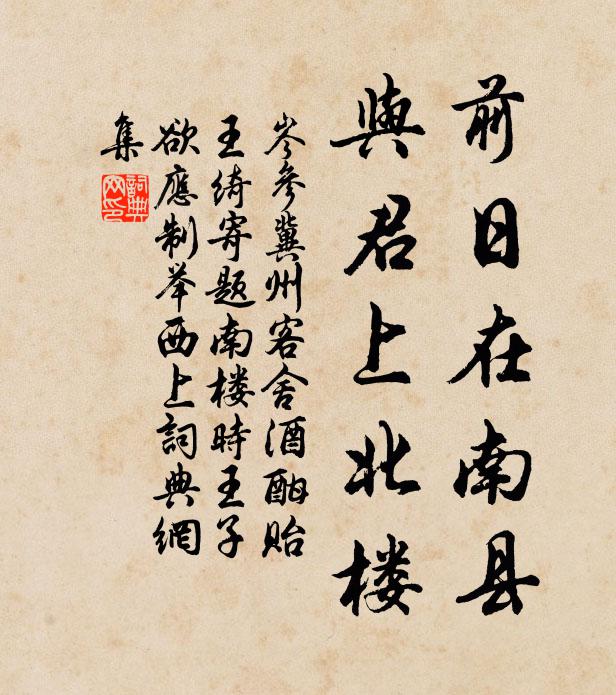 前日在南县
與君上北楼
岑参冀州客舍酒酣贻
王绮寄题南楼時王子
欲應制举西上詞典網
集
詞典
网印